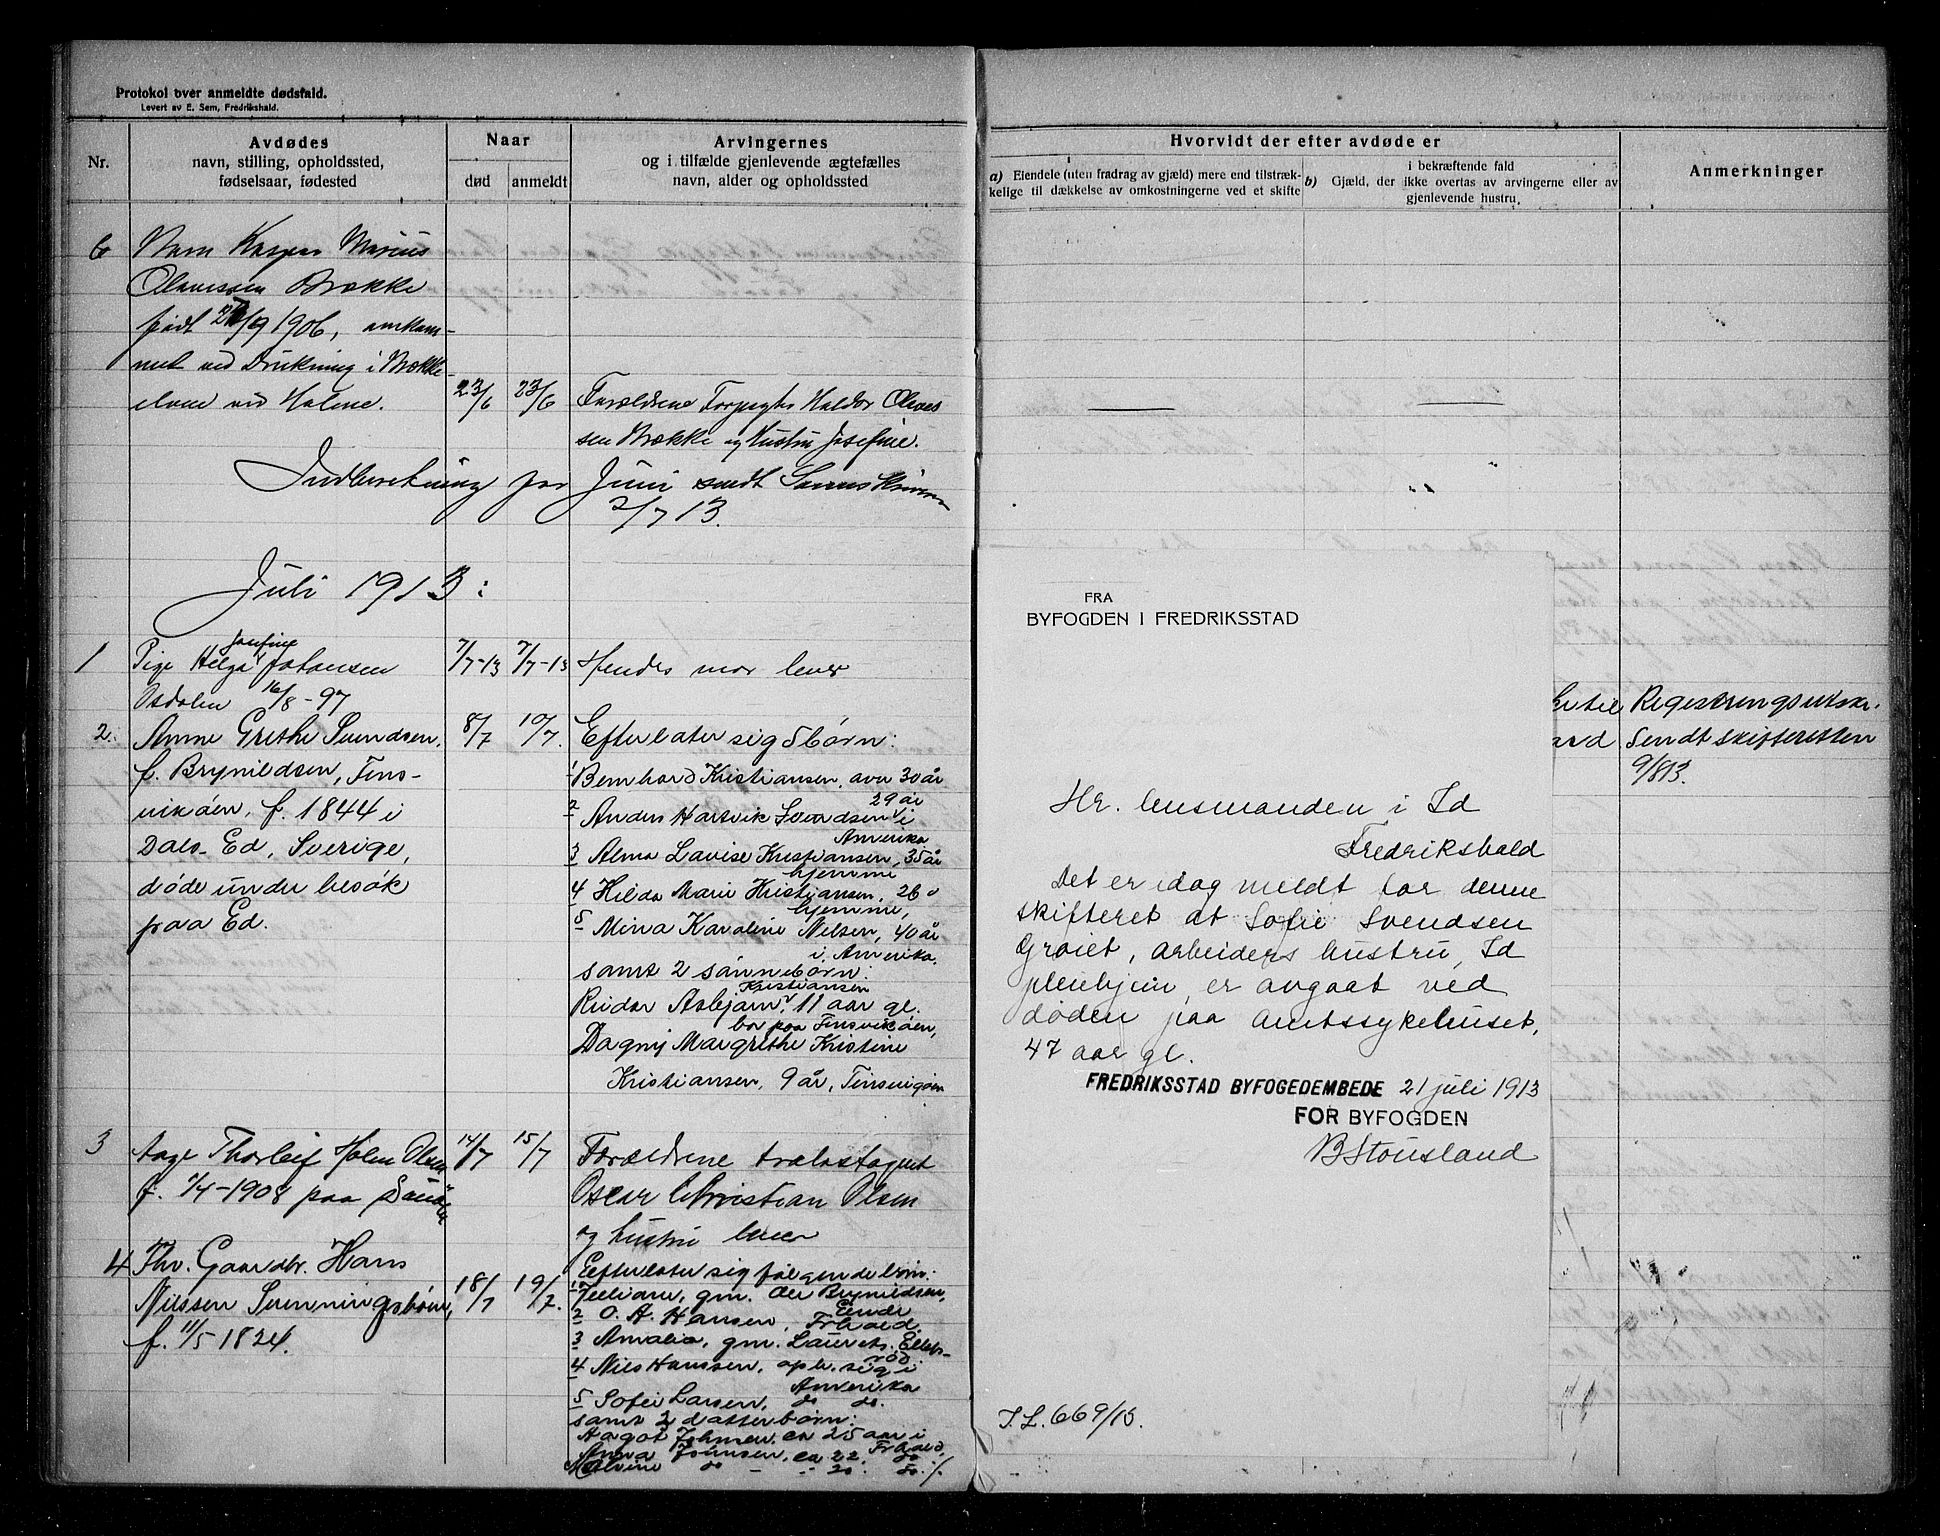 Protokol over anmeldte dødsfald.
Levert av E. Sem, Fredrikshald.
Nr.
Avdødes
navn, stilling, opholdssted,
fødselsaar, fødested
Naar
død
anmeldt
Arvingernes
og i tilfælde gjenlevende ægtefælles
navn, alder og opholdssted
6
Kasper Marius
Olavessen Brække
født 9 1906, omkom-
met ved Drukning i Brække
elven ved Holme.
23/6
23/6
Forældrene Haldor Olaves
sen Brække og Hustru Josefine.
Indberetning for Juni sendt Sorenskriveren
2/7 13.
Juli 1913:
1
Josefine
Pige Helga Johansen
Isdalen 16/8-97
7/7-13
7/7-13
Hendes mor lever
2.
Anne Grethe Svendsen,
f. Brynildsen, Tins-
vikøen, f. 1844 i
Dals-Ed, Sverige,
døde under besøk
paa Ed.
8/7
10/7.
Efterlater sig 5 børn:
1 Bernhard Kristiansen, over 30 år
29 år
2 Anders Hartvik Svendsen i
Amerika
3 Alma Lovise Kristiansen, 35 år
hjemme
4 Hilda Marie Kristiansen, 26 "
hjemme,
5 Mina Karoline Nilsen, 40 år
i Amerika,
samt 2 sønnebørn:
Kristiansen
Reidar Asbjørn, 11 aar gl.
bor paa Tinsvikøen,
Dagny Margrethe Kristine
Kristiansen, 9 år, Tinsvigøen
3
Aage Thorleif Holm Olsen
f. 1/4-1908 paa
14/7
15/7
Forældrene trælastagent
Oscar Christian Olsen
og hustru lever
4
Fhv. Gaardbr. Hans
Nilssen Svenningsbøen,
f. 11/5 1824.
18/7
19/7.
Efterlater sig følgende børn:
1 gm. Ole Brynildsen,
Eende
2 O. A. Hansen, Frhald.
3 Amalia, gm. Laurets. Ellefs-
rød
4 Nils Hanssen, oph. sig i
Amerika
5 Sofie Larsen, do do.
samt 3 datterbørn:
Aagot Johnsen, ca 25 aar i
Frhald,
Anna Johnsen, ca 22, do
Malvine do - " 20 do. /.
Hvorvidt der efter avdøde er
a) Eiendele (uten fradrag av gjæld) mere end tilstræk-
kelige til dækkelse av omkostningerne ved et skifte
b) Gjæld, der i bekræftende fald
ikke overtas av arvingerne eller av
gjenlevende hustru.
Anmerkninger
FRA
BYFOGDEN I FREDRIKSSTAD
Hr. lensmanden i Id
Fredrikshald
Det er idag meldt for denne
skifteret at Sofie Svendsen
Grøiet, arbeiders hustru, Id
pleiehjem, er avgaat ved
døden paa Amtssykehuset,
47 aar gl.
FREDRIKSSTAD BYFOGEDEMBEDE 21 juli 1913
FOR BYFOGDEN
B Stousland
J.L. 669/13.
Registreringsutskr.
Sendt skifteretten
9/8 13.